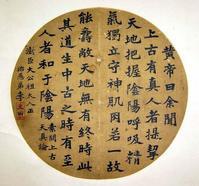 黃帝曰余聞
上古有真人者提挈
天地把握陰陽呼吸精
氣獨立守神肌肉若一故
能壽敝天地無有終時此
其道生中古之時有至
人者和于陰陽
素問上古
天真論
臣大公祖大人正
治愚弟李文田